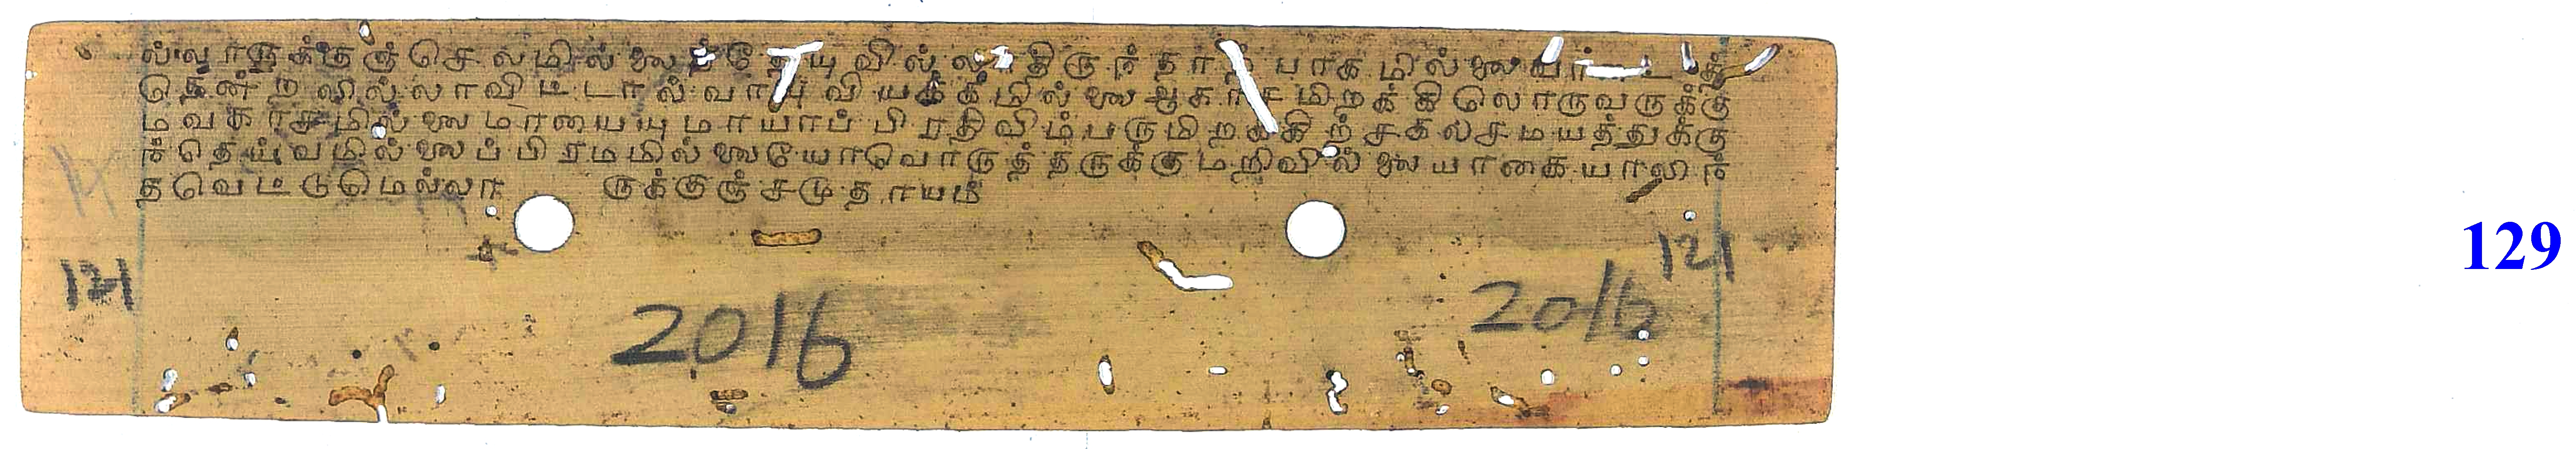 ல்லாருக்குஞ்செலமில்லைத்தேயுவில்லாதிருந்தாற் பாகமில்லை
தென்றலில்லாவிட்டால்வாயுவியக்கமில்லைஆகாசமிறக்கிலொருவருக்கு
மவகாசமில்லைமாயையுமாயாப்பிரதிவிம்பருமிறக்கிற்சகலசமயத்துக்கு
ந்தெய்வமில்லைப்பிரமமில்லையோவொருத்தருக்கும்அறிவில்லையாகையாலிந்
தவெட்டுமெல்லா ருக்குஞ்சமுதாயம்
121
121
2016
2016
129